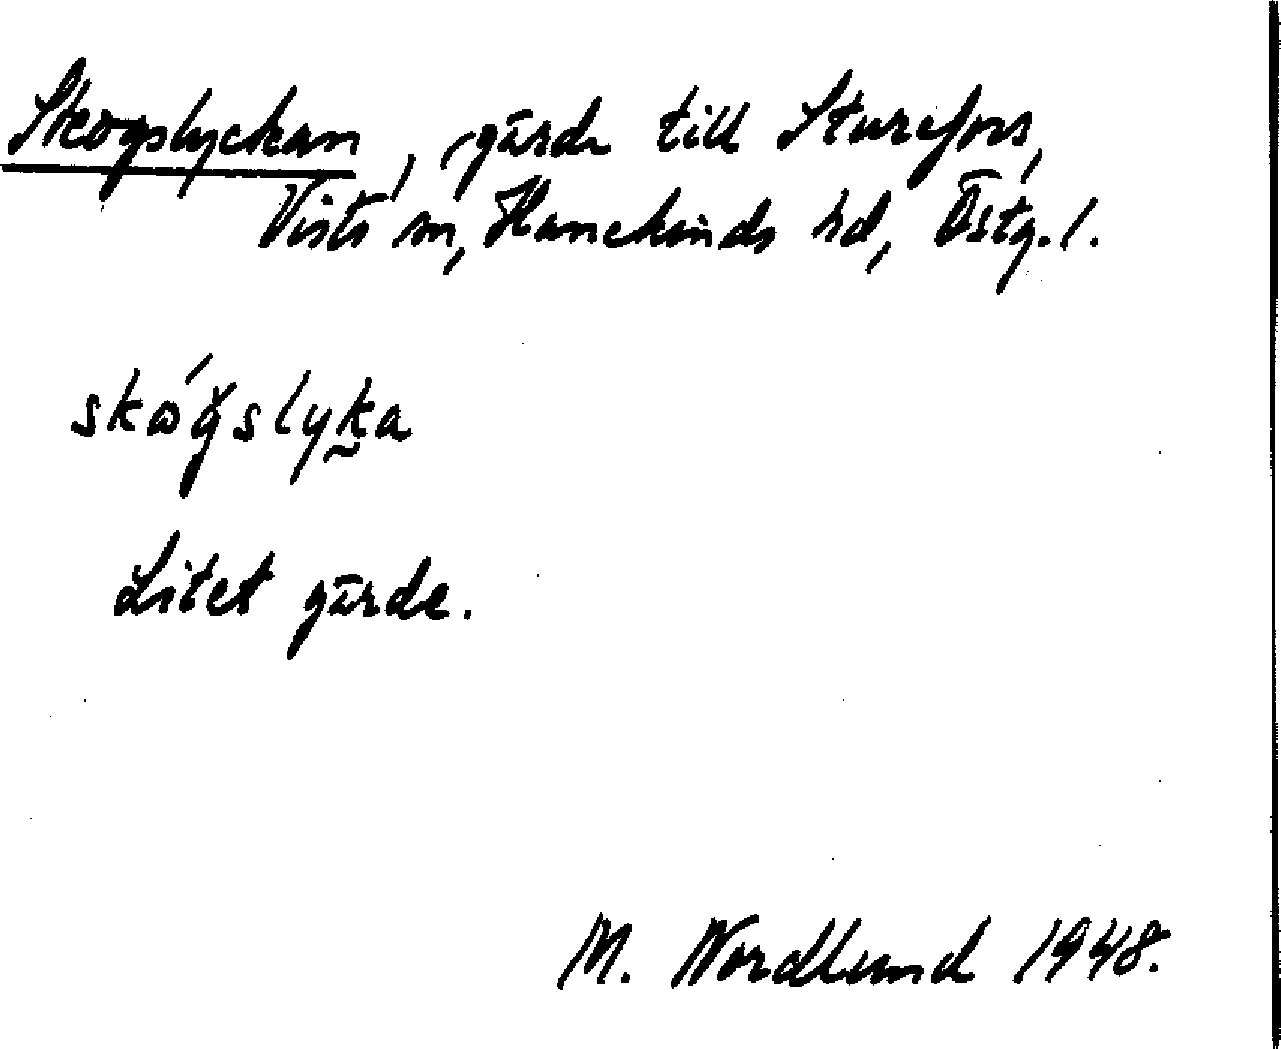 Skogslyckan, gärde till Sturefors,
Vists sn, Hanekinds hd, Östg. l.
skǿgslyka
Litet gärde.
M. Nordlund 1948.